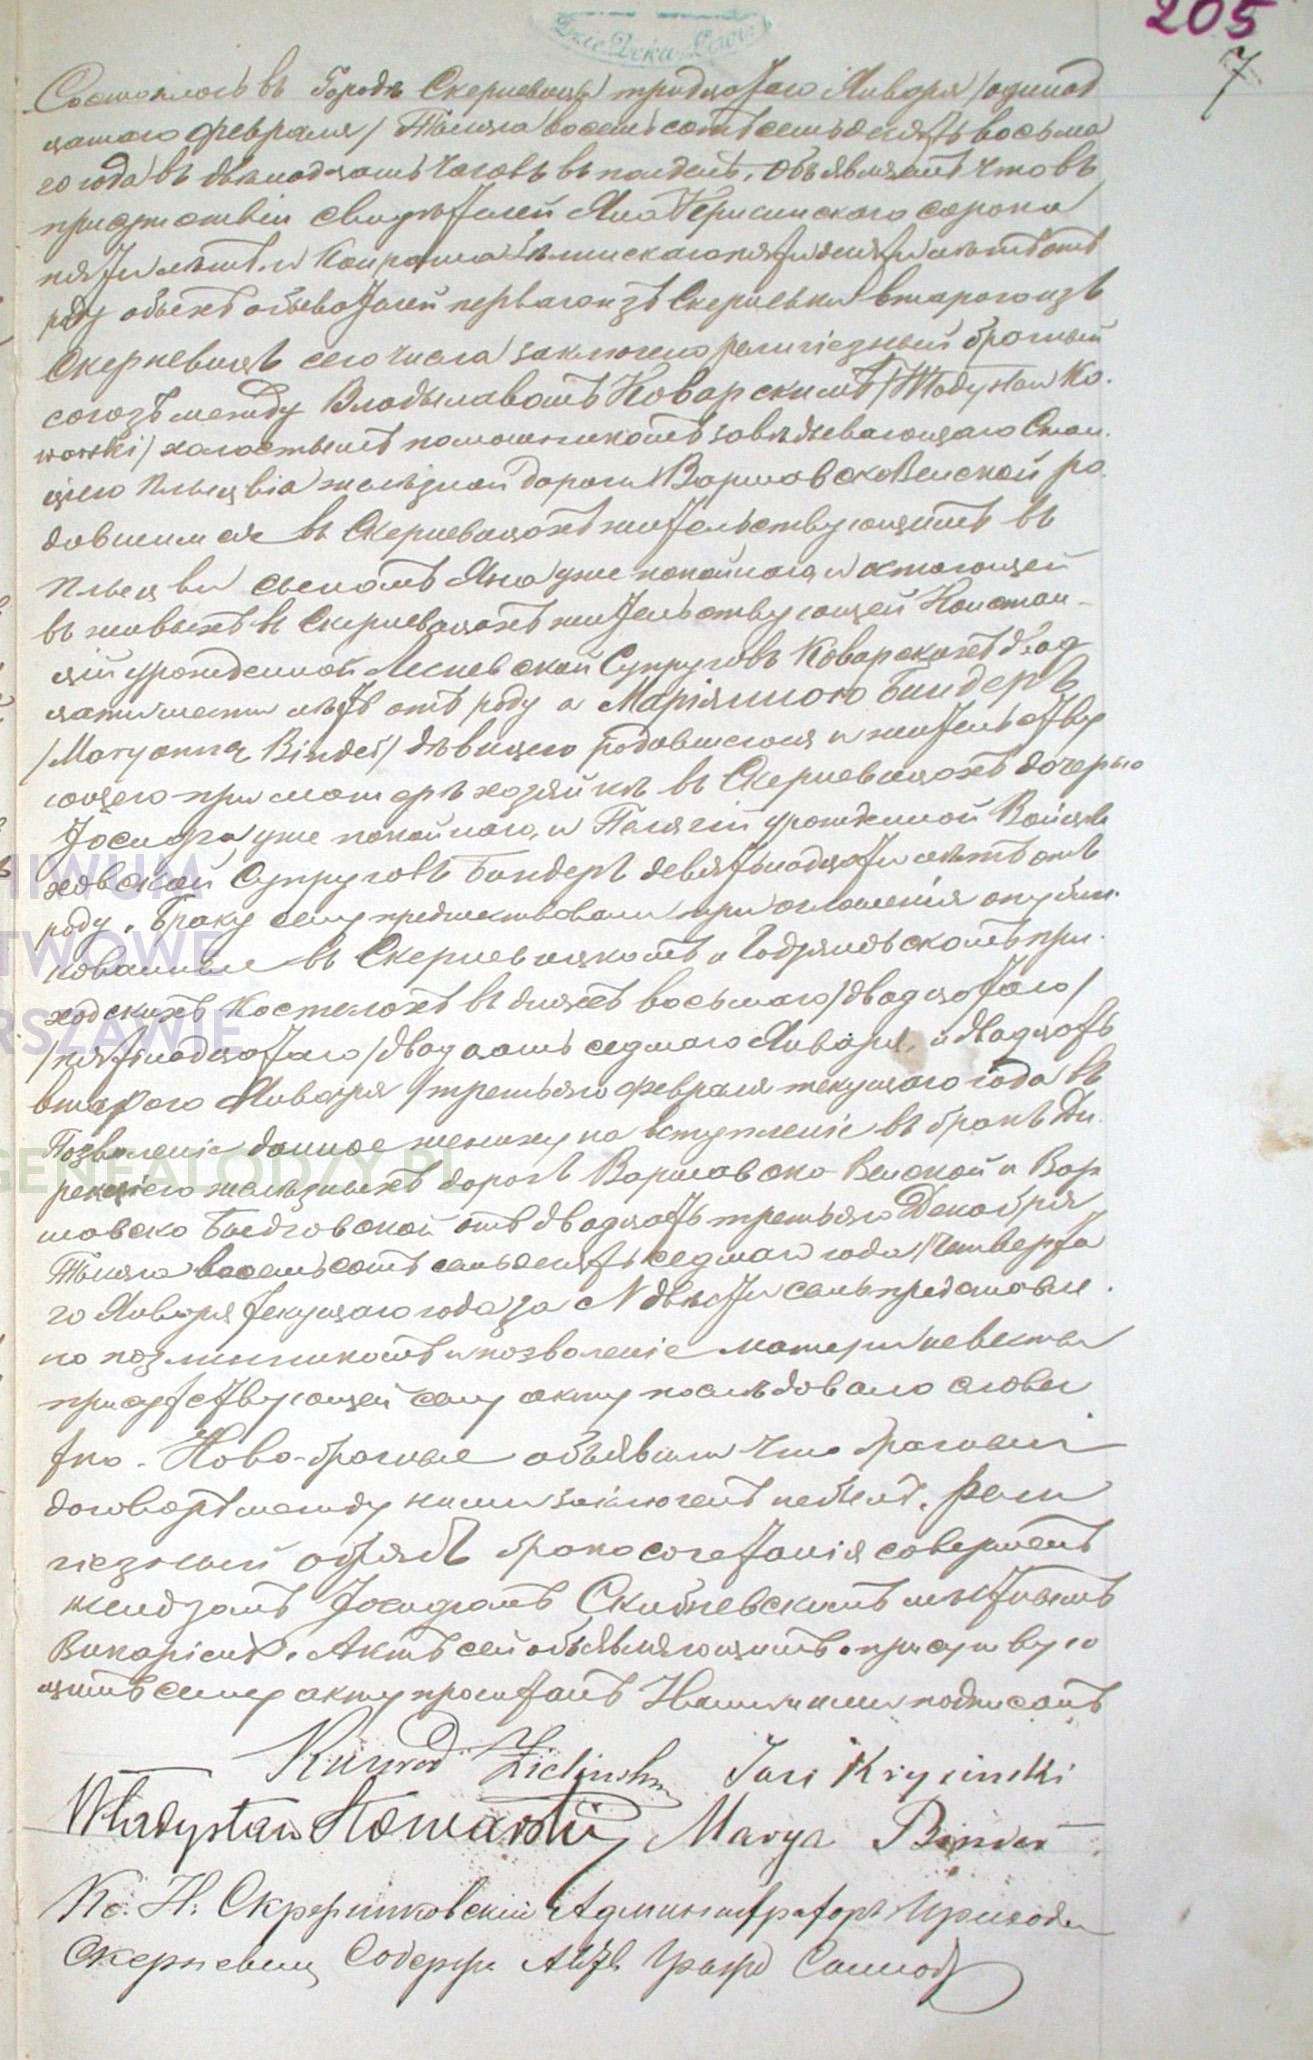 205
7
Состоялось въ Городѣ Скерневицы тридцатаго Января /одинад
цатаго Февраля/ Тысяча восемьсотъ семьдесятъ восьма
го года въ двенадцать часовъ въ полдень. Объявляемъ что въ
присутствіи свидѣтелей Яна Крисинскаго сорока
пяти лѣтъ и Конрада Зѣлинскаго пятидесяти лѣтъ отъ
роду обоихъ обывателей перваго изъ Скерневки втораго изъ
Скерневицъ сего числа заключенъ религіозный брачный
союзъ между Владыславомъ Коварскимъ /Władysław Ko-
warski/ холостымъ помошникомъ завѣдывающаго Стан-
ціею желѣзной дороги Варшавско Венской ро
дившимся въ Скерневицахъ жительствующимъ въ
сыномъ Яна уже покойнаго и остающей
въ живыхъ въ Скерневицахъ жительствующей Констан-
ціи урожденной Лесневской Супруговъ Коварскихъ двад
цати шести лѣтъ отъ роду а Маріянною Биндеръ
/Maryanna Binder/ дѣвицею родившеюся и жительству
ющею при матерѣ хозяйкѣ въ Скерневицахъ дочерью
Іосифа уже покойнаго, и Пелягіи урожденной Войцѣ
ховской Супруговъ Биндеръ девятьнадцати лѣтъ отъ
роду. Браку сему предшествовали три оглашенія опубли-
кованныя въ Скерневицкомъ и при-
ходскихъ Костелахъ въ дняхъ восьмаго /двадцатаго/
/пятьнадцатаго /двадцать седмаго Января, и двадцать
втораго Января /третьяго Февраля текущаго года въ
Позволеніе данное жениху на вступленіе въ бракъ Ди-
рекціею желѣзныхъ дорогъ Варшавско-Венской и Вар
шавско Быдговской отъ двадцать третьяго Декабря
Тысяча восемьсотъ семьдесятъ седмаго года /четверта
го Января текущаго года за N двѣсти семь представле-
но подлинникомъ и позволеніе матери невесты
присутствующей сему акту послѣдовало словес
тно. Ново-брачные объявили что брачный
договоръ между ними заключенъ небылъ. Рели
гіозный обрядъ бракосочетанія совершенъ
ксендзомъ Іосифомъ Скибневскимъ мѣстнымъ
Викаріемъ. Актъ сей объявляющимъ и присутству ю
щимъ сему акту прочитанъ Нами и ними подписанъ
Konrad Zieliński Jan Krysiński
Władysław Kowarski Marya Binder
Кс. Н. Администраторъ Прихода
Скерневицы Содерж. Акты Гражд. Состоя